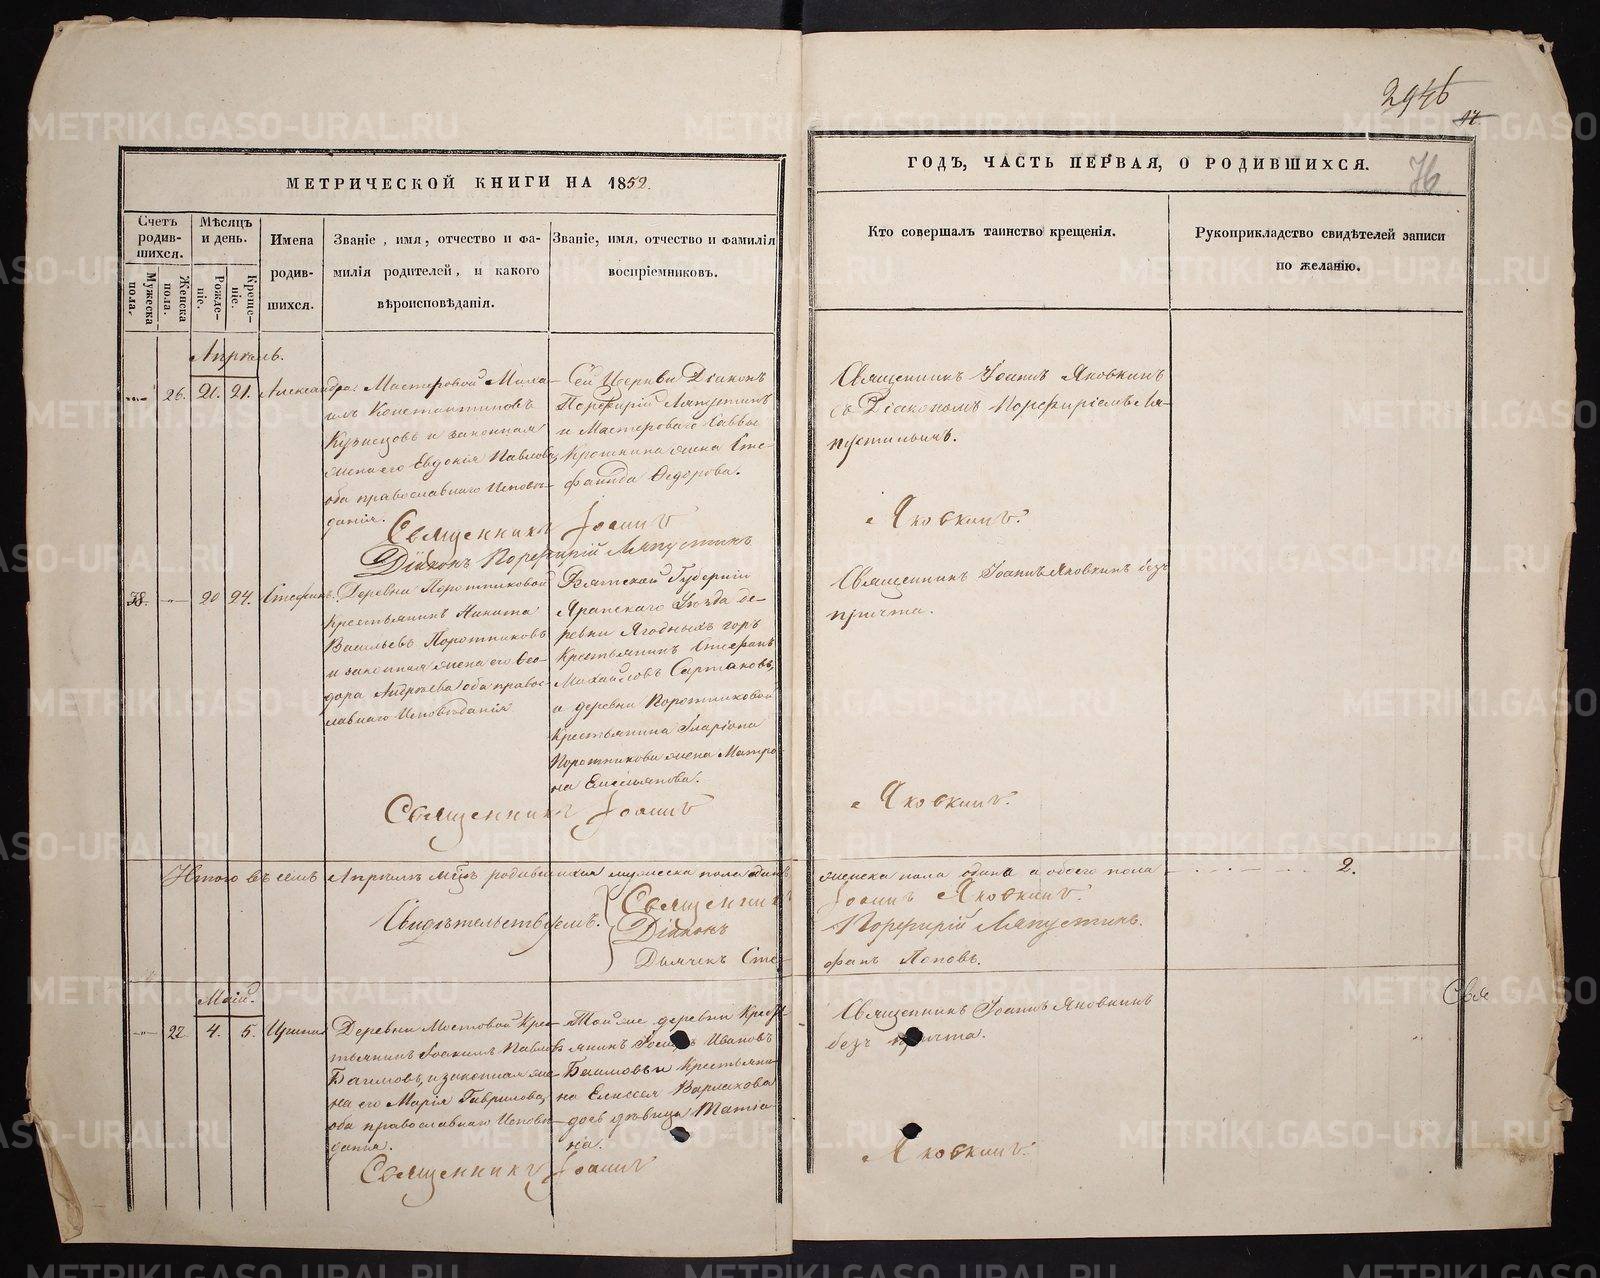 294б
17.
76
МЕТРИЧЕСКОЙ КНИГИ НА 1852.
ГОДЪ, ЧАСТЬ ПЕРВАЯ, О РОДИВШИХСЯ.
Счетъ родив-шихся.
Мужеска пола.
Женска пола.
Мѣсяцъ и день.
Рожде-ніе.
Креще-ніе.
Имена родив-шихся.
Званіе, имя, отчество и фа-
милія родителей, и какого
вѣроисповѣданія.
Званіе, имя, отчество и фамилія
воспріемниковъ.
Кто совершалъ таинство крещенія.
Рукоприкладство свидѣтелей записи
по желанію.
Апрѣль.
26. 21. 21. Александра.
Мастеровой Миха-
илъ Константиновъ
Кузнецовъ и законная
жена его Евдокія Павлова,
оба православнаго Исповѣ-
данія.
Сей Церкви Діаконъ
Порфирій Ляпустинъ
и Мастероваго Саввы
Крошнина жена Сте-
фанида Ѳедорова.
Священникъ Іоаннъ Яковкинъ
съ Діакономъ Порфиріемъ Ля-
пустинымъ.
Священникъ Іоаннъ Яковкинъ.
Діаконъ Порфирій Ляпустинъ
38. 20 24. Стефанъ.
Деревни Поротниковой
крестьянинъ Никита
Васильевъ Поротниковъ
и законная жена его Ѳео-
дора Андреева, оба правос-
лавнаго Исповѣданія
Вятской Губерніи
Яранскаго Уѣзда де-
ревни Ягодныхъ горъ
Крестьянинъ Стефанъ
Михайловъ Сартаковъ,
и деревни Поротниковой
Крестьянина Иларіона
Поротникова жена Матро-
на Емельянова.
Священникъ Іоаннъ Яковкинъ безъ
причта.
Священникъ Іоаннъ Яковкинъ.
Итого въ семъ Апрѣлѣ мцѣ родившихся мужеска пола одинъ женска пола одна а обоего пола 2.
Свидѣтельствуемъ.
Священникъ Іоаннъ Яковкинъ.
Діаконъ Порфирій Ляпустинъ.
Дьячекъ Стефанъ Поповъ.
Свя
Маій.
22. 4. 5. Ирина
Деревни Мостовой Кре-
тьянинъ Іоакимъ Павлов
Баимовъ, и законная же-
на его Марія Гаврилова,
оба православнаго Исповѣ-
данія.
Той же деревни Крест
янинъ Ивановъ
Баимовъ и Крестьяни-
на Елисея Варлакова
дочь дѣвица Татіа-
на.
Священникъ Іоаннъ Яковкинъ
безъ причта.
Священникъ Іоаннъ Яковкинъ.
METRIKI.GASO-URAL.RU